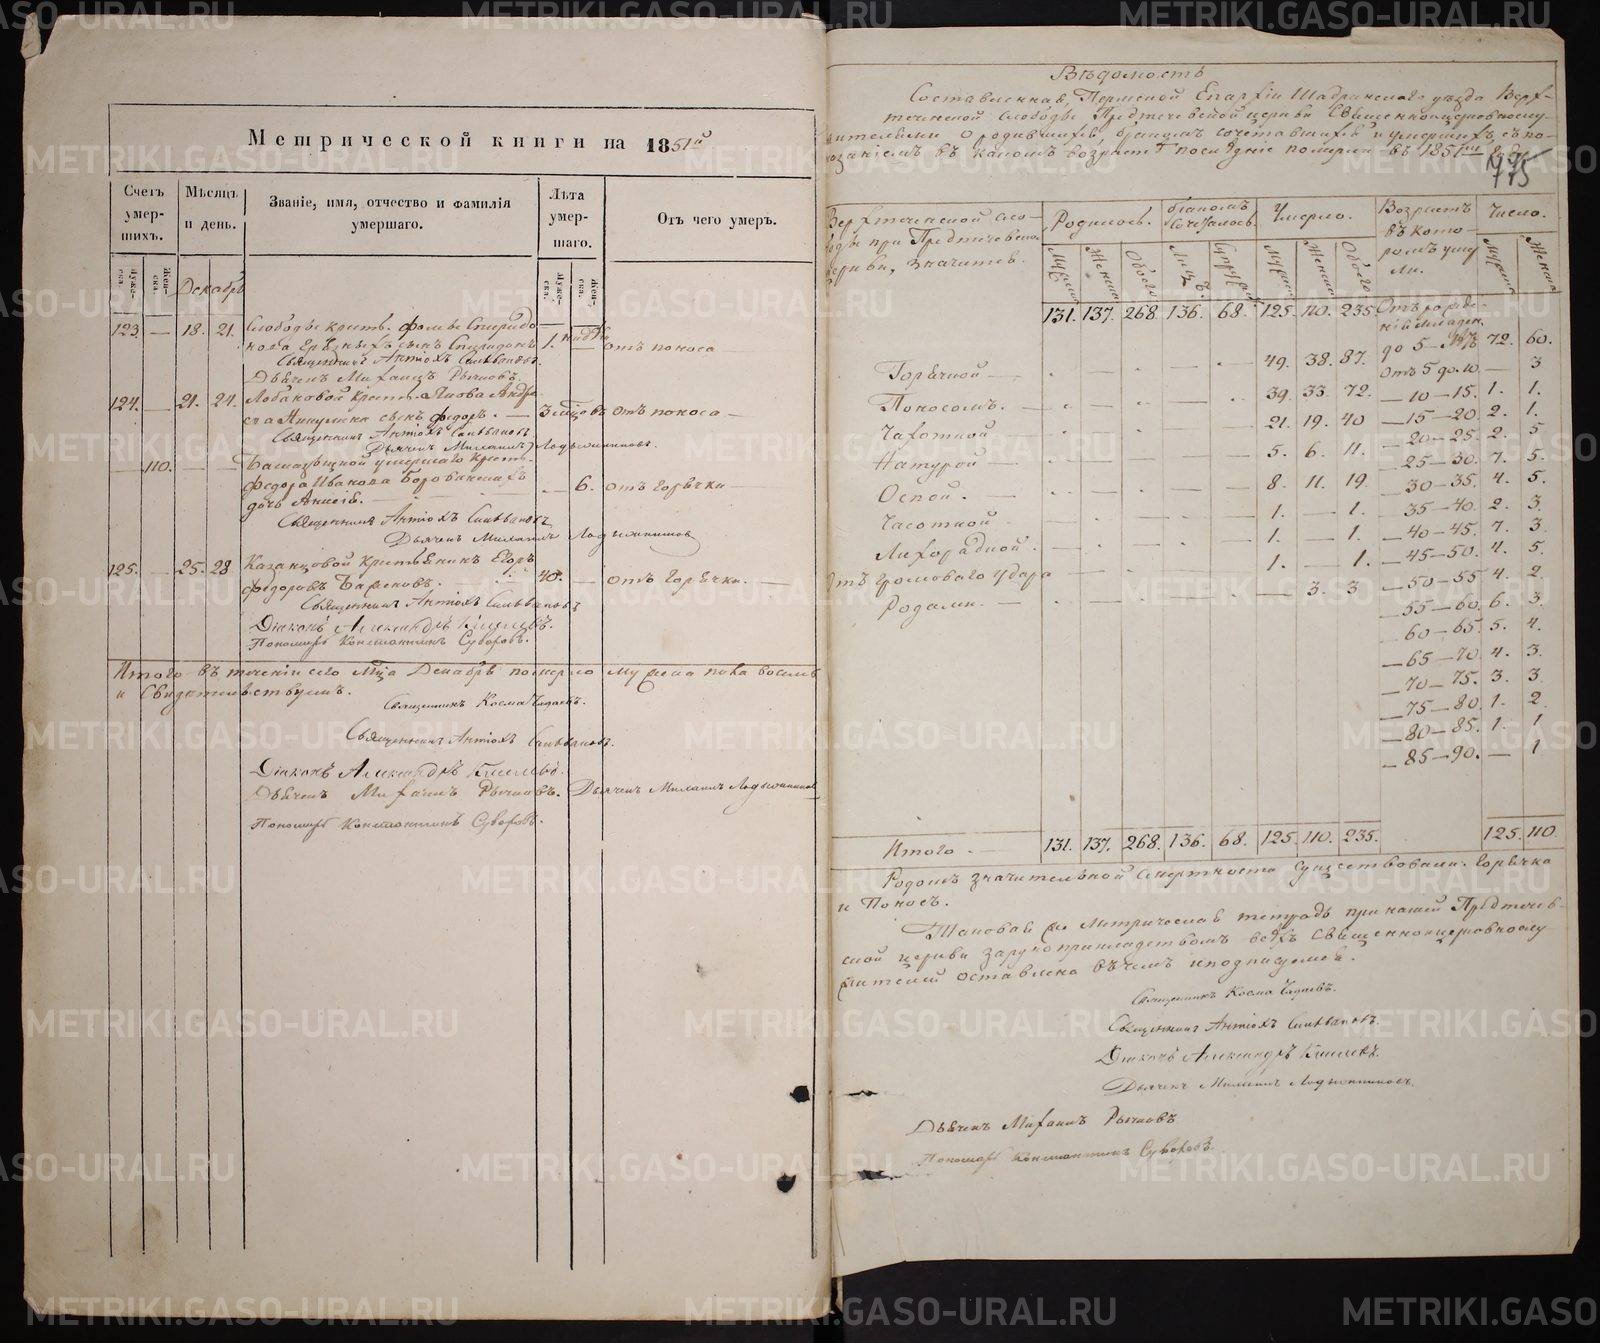 Метрической книги на 1851й
Счетъ умер-шихъ.
Мѣсяцъ и день.
Званіе, имя, отчество и фамилія умершаго.
Лѣта умер-шаго.
Отъ чего умеръ.
Муже-ска.
Жен-ска.
Декабрь
Муже-ска.
Жен-ска.
123. — 18. 21. Слободы крест. Фомы Спиридо
нова сынъ Спиридонъ 1. — отъ поноса
Священникъ Антіохъ Сильвановъ.
Дьячекъ Михаилъ Рычковъ.
124. — 21. 24. Лобановой крест. Якова Андре
ева сынъ Федоръ. — 3 мѣсцовъ отъ поноса —
Священникъ Антіохъ Сильвановъ
Дьячекъ Михаилъ Ладыжниковъ.
— 110. — умершаго крест.
Федора Иванова
дочь Анисія. — 6. отъ горячки —
Священникъ Антіохъ Сильвановъ
Дьячекъ Михаилъ Ладыжниковъ
125. — 25. 28 Казанцовой крестьянинъ Егоръ
Федоровъ 40. — отъ горячки. —
Священникъ Антіохъ Сильвановъ
Діаконъ Александръ Киселевъ.
Пономарь Константинъ Суворовъ.
Итого въ теченіи сего мца Декабрѣ померло мужеска пола восемь
и Свидѣтельствуемъ.
Священникъ Косма
Священникъ Антіохъ Сильвановъ.
Діаконъ Александръ Киселевъ.
Дьячекъ Михаилъ Рычковъ. Дьячекъ Михаилъ Ладыжниковъ
Пономарь Константинъ Суворовъ.
Вѣдомость
Составленная, Пермской Епархіи Шадринскаго уѣзда Верх-
теченской слободы Предтечевской церкви Священноцерковнослу-
жителями о родившихся бракомъ сочетавшихся и умершихъ съ по-
казаніемъ въ какомъ возрастѣ послѣдніе померли въ 1851м году
775
Верхтеченской сло-
боды при Предтечевской
церкви, значится.
Родилось.
бракомъ сочеталось.
Умерло.
Возрастъ въ кото-ромъ умер-ли.
Число.
Мужеска
Женска
Обоего
Лицъ.
Супруж.
Мужес.
Женска
Обоего
Мужеска
Женска
131. 137. 268. 136. 68. 125. 110. 235. Отъ рожде-
ній младен.
до 5 — лѣтъ 72. 60.
Горячкой — 49. 38. 87. отъ 5 до 10. — 3
Поносомъ. — 39. 33. 72. — 10 — 15. 1. 1.
Чахоткой 21. 19. 40 — 15 — 20 2. 1.
— 20 — 25. 2. 5
Натурой — 5. 6. 11. — 25 — 30. 7. 5.
Оспой. — 8. 11. 19. — 30 — 35. 4. 5.
Часоткой 1. — 1. 35 — 40. 2. 3.
Лихорадкой. 1. — 1. — 40 — 45. 7. 3.
— 45 — 50. 4. 5.
Отъ громоваго удара 1. — 1. — 50 — 55 4. 2.
Родами. — — 3. 3 55 — 60. 6. 3.
60 — 65. 5. 4.
— 65 — 70. 4. 3.
— 70 — 75. 3. 3
— 75 — 80. 1. 2
— 80 — 85. 1. 1
— 85 — 90. — 1
Итого — 131. 137. 268. 136. 68. 125. 110. 235. 125. 110.
Родомъ значительной смертности существовали: Горячка
и Поносъ.
Таковая же Метрическая тетрадь при нашей Предтечев-
ской церкви за рукоприкладствомъ всѣхъ Священноцерковнослу-
жителей оставлена въ чемъ и подписуемся.
Священникъ Косма
Священникъ Антіохъ Сильвановъ.
Діаконъ Александръ Киселевъ.
Дьячекъ Михаилъ Ладыжниковъ.
Дьячекъ Михаилъ Рычковъ
Пономарь Константинъ Суворовъ.
METRIKI.GASO-URAL.RU